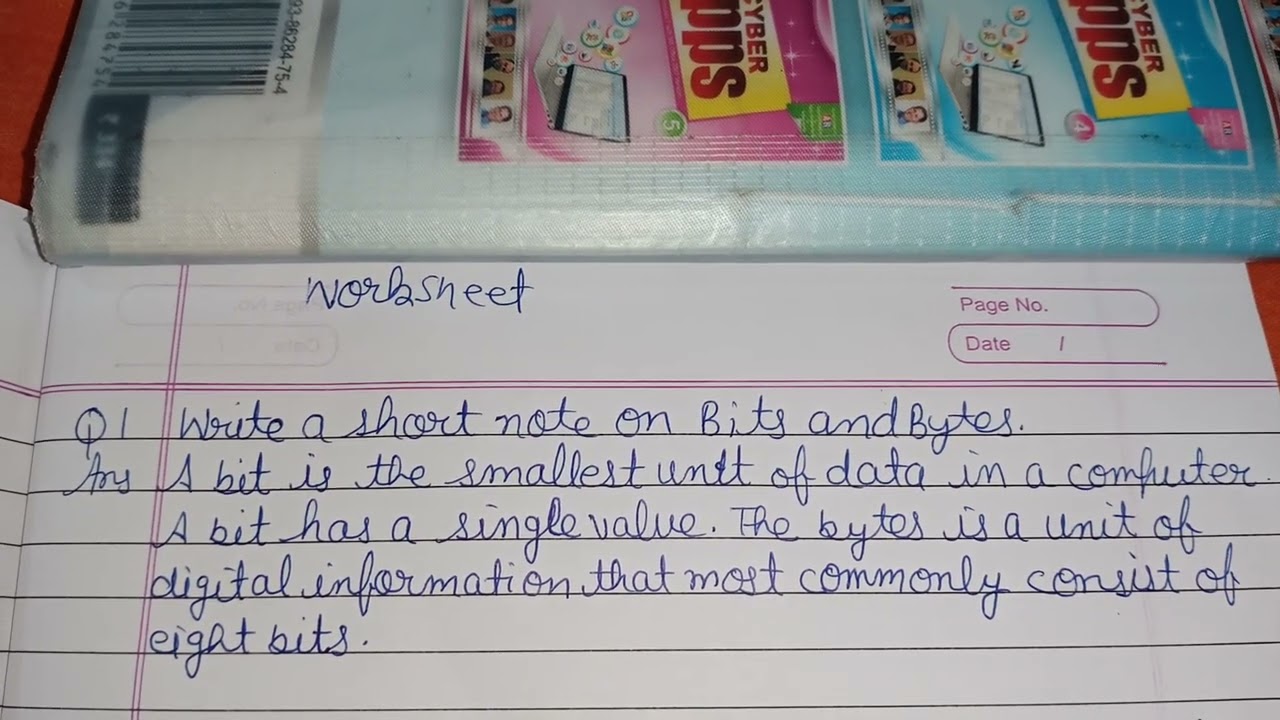 93-86284-75-4
CYBER
pps
5
CYBER
pps
4
Worksheet
Page No.
Date /
Q1 Write a short note on Bits and Bytes.
Ans A bit is the smallest unit of data in a computer.
A bit has a single value. The bytes is a unit of
digital information that most commonly consist of
eight bits.